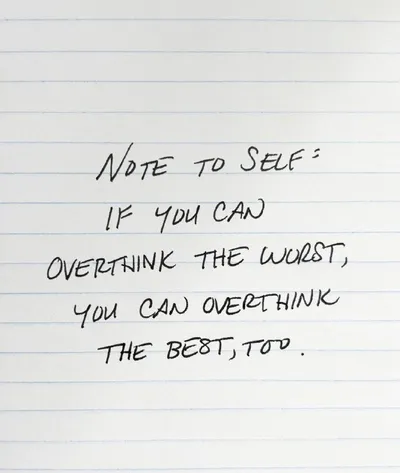 NOTE TO SELF:
IF YOU CAN
OVERTHINK THE WORST,
YOU CAN OVERTHINK
THE BEST, TOO.